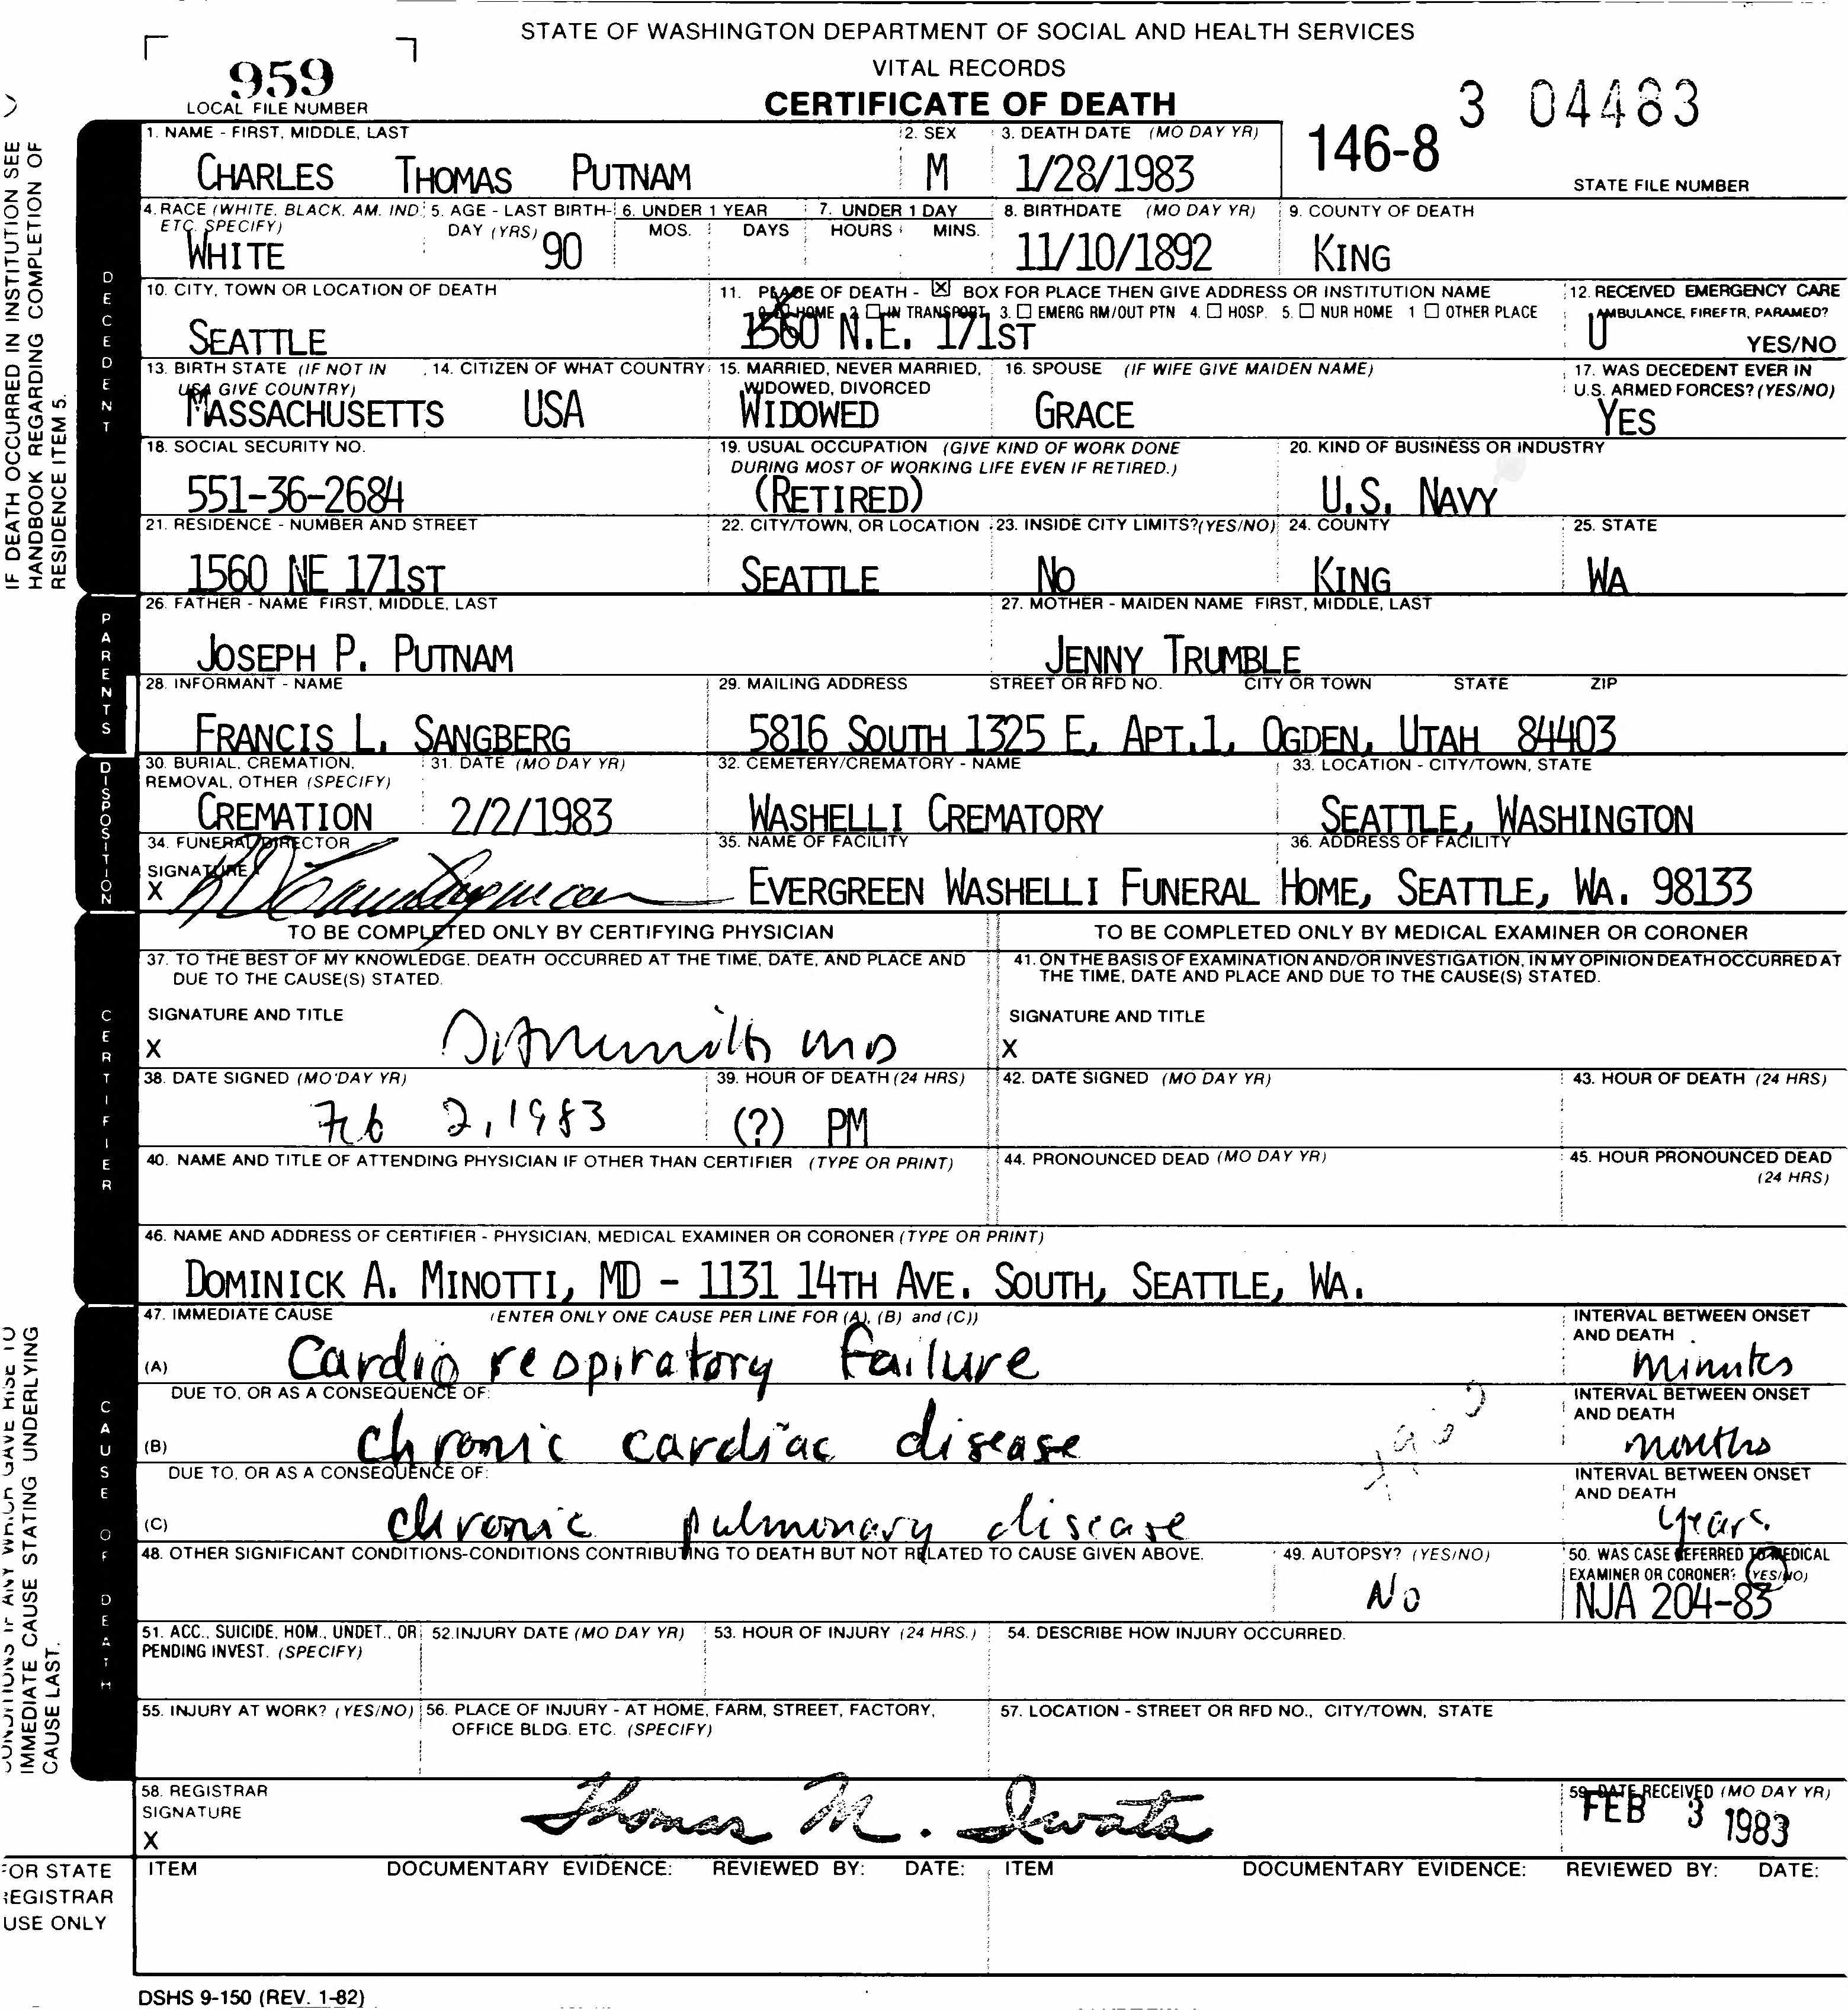 STATE OF WASHINGTON DEPARTMENT OF SOCIAL AND HEALTH SERVICES
VITAL RECORDS
CERTIFICATE OF DEATH
959
LOCAL FILE NUMBER
146-8
3 04483
STATE FILE NUMBER
IF DEATH OCCURRED IN INSTITUTION SEE
HANDBOOK REGARDING COMPLETION OF
RESIDENCE ITEM 5.
DECEDENT
1. NAME - FIRST, MIDDLE, LAST 2. SEX 3. DEATH DATE (MO DAY YR)
CHARLES THOMAS PUTNAM M 1/28/1983
4. RACE (WHITE, BLACK, AM. IND. 5. AGE - LAST BIRTH- 6. UNDER 1 YEAR 7. UNDER 1 DAY 8. BIRTHDATE (MO DAY YR) 9. COUNTY OF DEATH
ETC. SPECIFY) DAY (YRS) MOS. DAYS HOURS MINS.
WHITE 90 11/10/1892 KING
10. CITY, TOWN OR LOCATION OF DEATH 11. PLACE OF DEATH - BOX FOR PLACE THEN GIVE ADDRESS OR INSTITUTION NAME 12. RECEIVED EMERGENCY CARE
HOME 2. IN TRANSPORT 3. EMERG RM/OUT PTN 4. HOSP. 5. NUR HOME 1 OTHER PLACE AMBULANCE, FIREFTR, PARAMED?
SEATTLE 1560 N.E. 171ST U YES/NO
13. BIRTH STATE (IF NOT IN 14. CITIZEN OF WHAT COUNTRY 15. MARRIED, NEVER MARRIED, 16. SPOUSE (IF WIFE GIVE MAIDEN NAME) 17. WAS DECEDENT EVER IN
USA GIVE COUNTRY) WIDOWED, DIVORCED U.S. ARMED FORCES? (YES/NO)
MASSACHUSETTS USA WIDOWED GRACE YES
18. SOCIAL SECURITY NO. 19. USUAL OCCUPATION (GIVE KIND OF WORK DONE 20. KIND OF BUSINESS OR INDUSTRY
DURING MOST OF WORKING LIFE EVEN IF RETIRED.)
551-36-2684 (RETIRED) U.S. NAVY
21. RESIDENCE - NUMBER AND STREET 22. CITY/TOWN, OR LOCATION 23. INSIDE CITY LIMITS? (YES/NO) 24. COUNTY 25. STATE
1560 NE 171ST SEATTLE NO KING WA
PARENTS
26. FATHER - NAME FIRST, MIDDLE, LAST 27. MOTHER - MAIDEN NAME FIRST, MIDDLE, LAST
JOSEPH P. PUTNAM JENNY TRUMBLE
28. INFORMANT - NAME 29. MAILING ADDRESS STREET OR RFD NO. CITY OR TOWN STATE ZIP
FRANCIS L. SANGBERG 5816 SOUTH 1325 E, APT.1, OGDEN, UTAH 84403
DISPOSITION
30. BURIAL, CREMATION, 31. DATE (MO DAY YR) 32. CEMETERY/CREMATORY - NAME 33. LOCATION - CITY/TOWN, STATE
REMOVAL, OTHER (SPECIFY)
CREMATION 2/2/1983 WASHELLI CREMATORY SEATTLE, WASHINGTON
34. FUNERAL DIRECTOR 35. NAME OF FACILITY 36. ADDRESS OF FACILITY
SIGNATURE
X EVERGREEN WASHELLI FUNERAL HOME, SEATTLE, WA. 98133
CERTIFIER
TO BE COMPLETED ONLY BY CERTIFYING PHYSICIAN TO BE COMPLETED ONLY BY MEDICAL EXAMINER OR CORONER
37. TO THE BEST OF MY KNOWLEDGE, DEATH OCCURRED AT THE TIME, DATE, AND PLACE AND 41. ON THE BASIS OF EXAMINATION AND/OR INVESTIGATION, IN MY OPINION DEATH OCCURRED AT
DUE TO THE CAUSE(S) STATED. THE TIME, DATE AND PLACE AND DUE TO THE CAUSE(S) STATED.
SIGNATURE AND TITLE SIGNATURE AND TITLE
X MD X
38. DATE SIGNED (MO DAY YR) 39. HOUR OF DEATH (24 HRS) 42. DATE SIGNED (MO DAY YR) 43. HOUR OF DEATH (24 HRS)
Feb 2, 1983 (?) PM
40. NAME AND TITLE OF ATTENDING PHYSICIAN IF OTHER THAN CERTIFIER (TYPE OR PRINT) 44. PRONOUNCED DEAD (MO DAY YR) 45. HOUR PRONOUNCED DEAD
(24 HRS)
46. NAME AND ADDRESS OF CERTIFIER - PHYSICIAN, MEDICAL EXAMINER OR CORONER (TYPE OR PRINT)
DOMINICK A. MINOTTI, MD - 1131 14TH AVE. SOUTH, SEATTLE, WA.
CONDITIONS IF ANY WHICH GAVE RISE TO
IMMEDIATE CAUSE STATING UNDERLYING
CAUSE LAST.
CAUSE OF DEATH
47. IMMEDIATE CAUSE (ENTER ONLY ONE CAUSE PER LINE FOR (A), (B) and (C)) INTERVAL BETWEEN ONSET
AND DEATH
(A) Cardio respiratory failure minutes
DUE TO, OR AS A CONSEQUENCE OF: INTERVAL BETWEEN ONSET
AND DEATH
(B) chronic cardiac disease months
DUE TO, OR AS A CONSEQUENCE OF: INTERVAL BETWEEN ONSET
AND DEATH
(C) chronic pulmonary disease years.
48. OTHER SIGNIFICANT CONDITIONS-CONDITIONS CONTRIBUTING TO DEATH BUT NOT RELATED TO CAUSE GIVEN ABOVE. 49. AUTOPSY? (YES/NO) 50. WAS CASE REFERRED TO MEDICAL
EXAMINER OR CORONER? (YES/NO)
No NJA 204-83
51. ACC., SUICIDE, HOM., UNDET., OR 52. INJURY DATE (MO DAY YR) 53. HOUR OF INJURY (24 HRS.) 54. DESCRIBE HOW INJURY OCCURRED.
PENDING INVEST. (SPECIFY)
55. INJURY AT WORK? (YES/NO) 56. PLACE OF INJURY - AT HOME, FARM, STREET, FACTORY, 57. LOCATION - STREET OR RFD NO., CITY/TOWN, STATE
OFFICE BLDG. ETC. (SPECIFY)
58. REGISTRAR 59. DATE RECEIVED (MO DAY YR)
SIGNATURE
X Thomas M. Iwata FEB 3 1983
FOR STATE
REGISTRAR
USE ONLY
ITEM DOCUMENTARY EVIDENCE: REVIEWED BY: DATE: ITEM DOCUMENTARY EVIDENCE: REVIEWED BY: DATE:
DSHS 9-150 (REV. 1-82)